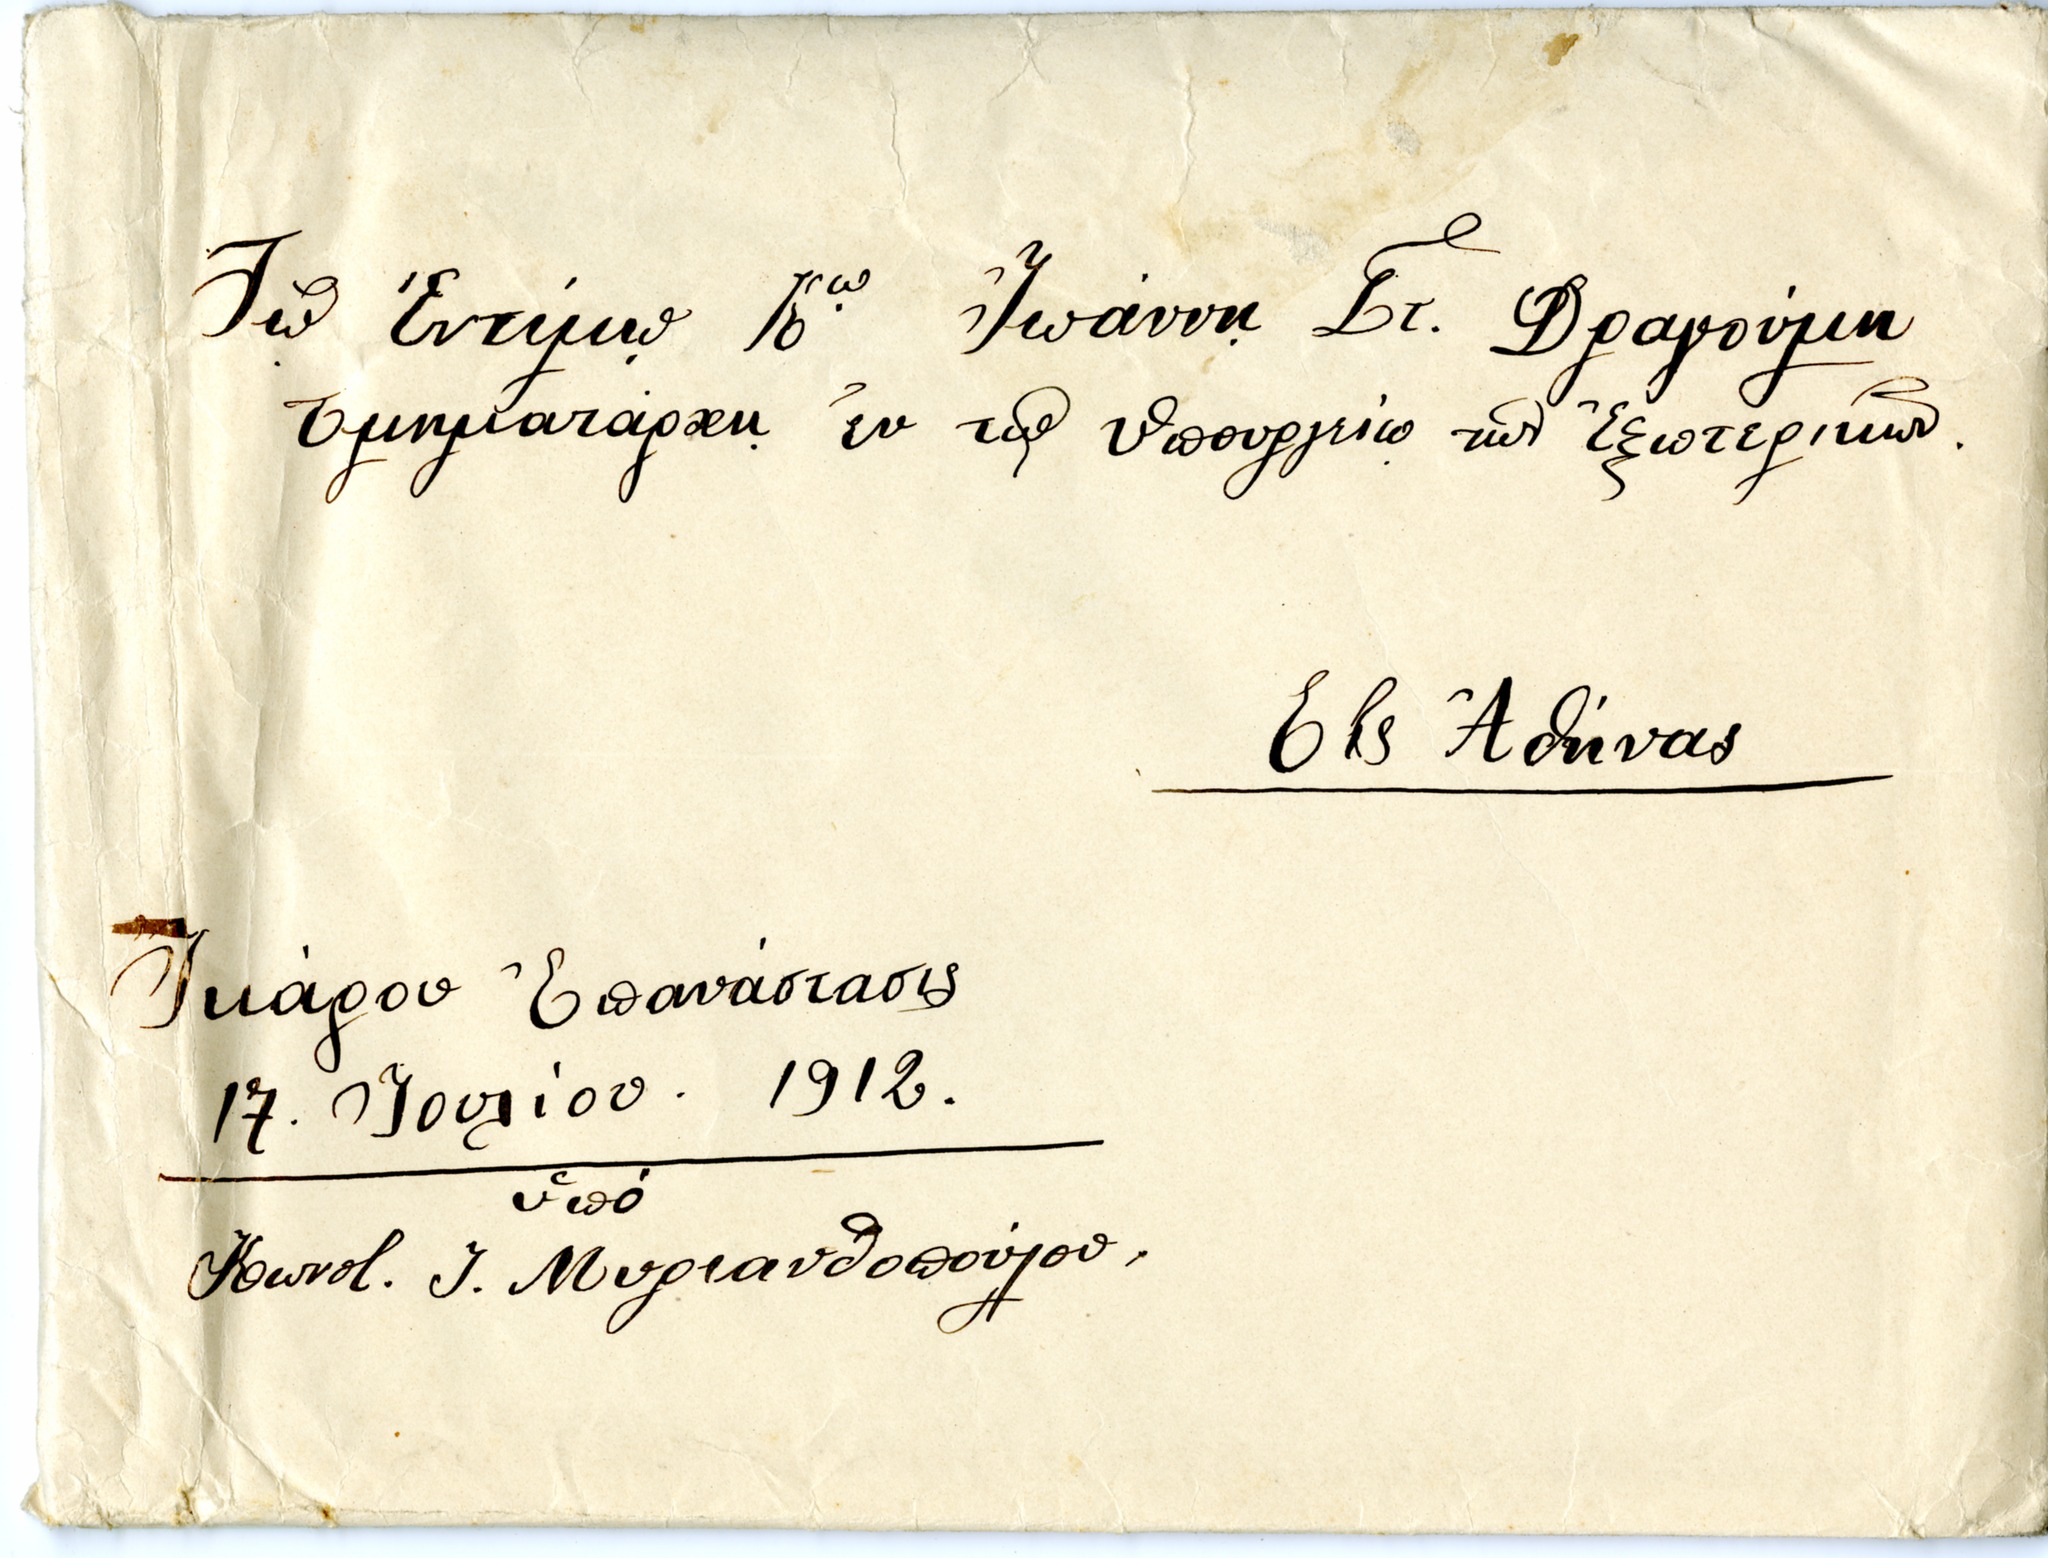 Τῷ Ἐντίμῳ Κῳ Ἰωάννῃ Στ. Δραγούμη
τμηματάρχῃ ἐν τῷ Ὑπουργείῳ τῶν Ἐξωτερικῶν.
Εἰς Ἀθήνας
Ἰκάρου Ἐπανάστασις
17. Ἰουλίου. 1912.
ὑπὸ
Κωνστ. Ι. Μυριανθοπούλου.